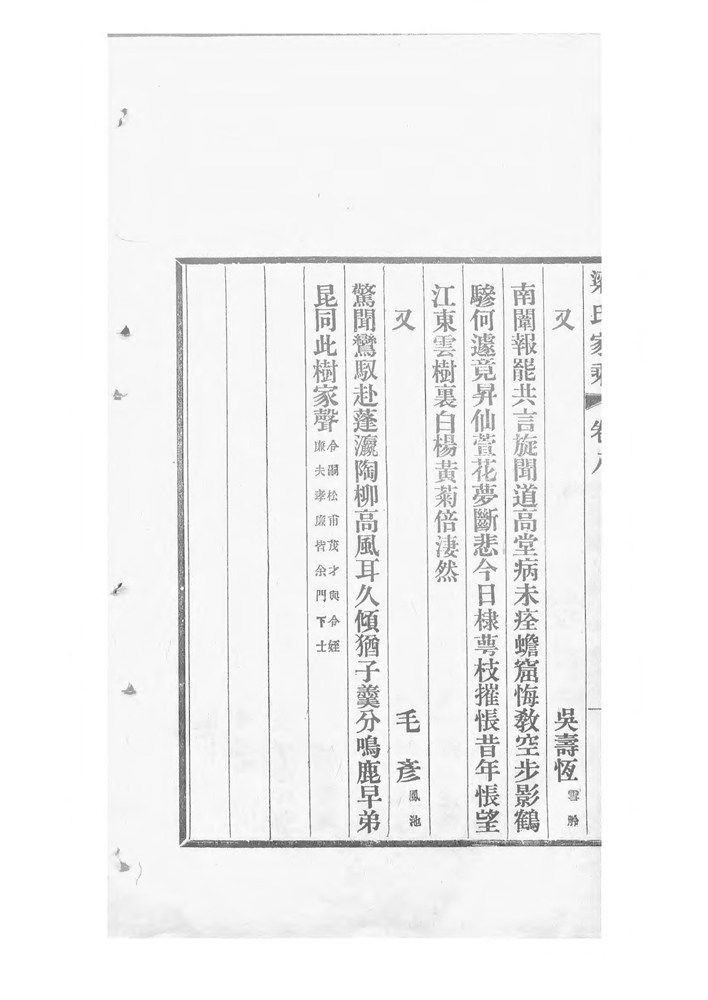 梁氏家乘 卷八
又 吳壽恆 雲舲
南闈報罷共言旋聞道高堂病未痊蟾窟悔教空步影鶴
驂何遽竟昇仙萱花夢斷悲今日棣萼枝摧悵昔年悵望
江東雲樹裏白楊黃菊倍淒然
又 毛彥 鳳池
驚聞鸞馭赴蓬瀛陶柳高風耳久傾猶子羹分鳴鹿早弟
昆同此樹家聲 令嗣松甫茂才與令姪
廉夫孝廉皆余門下士